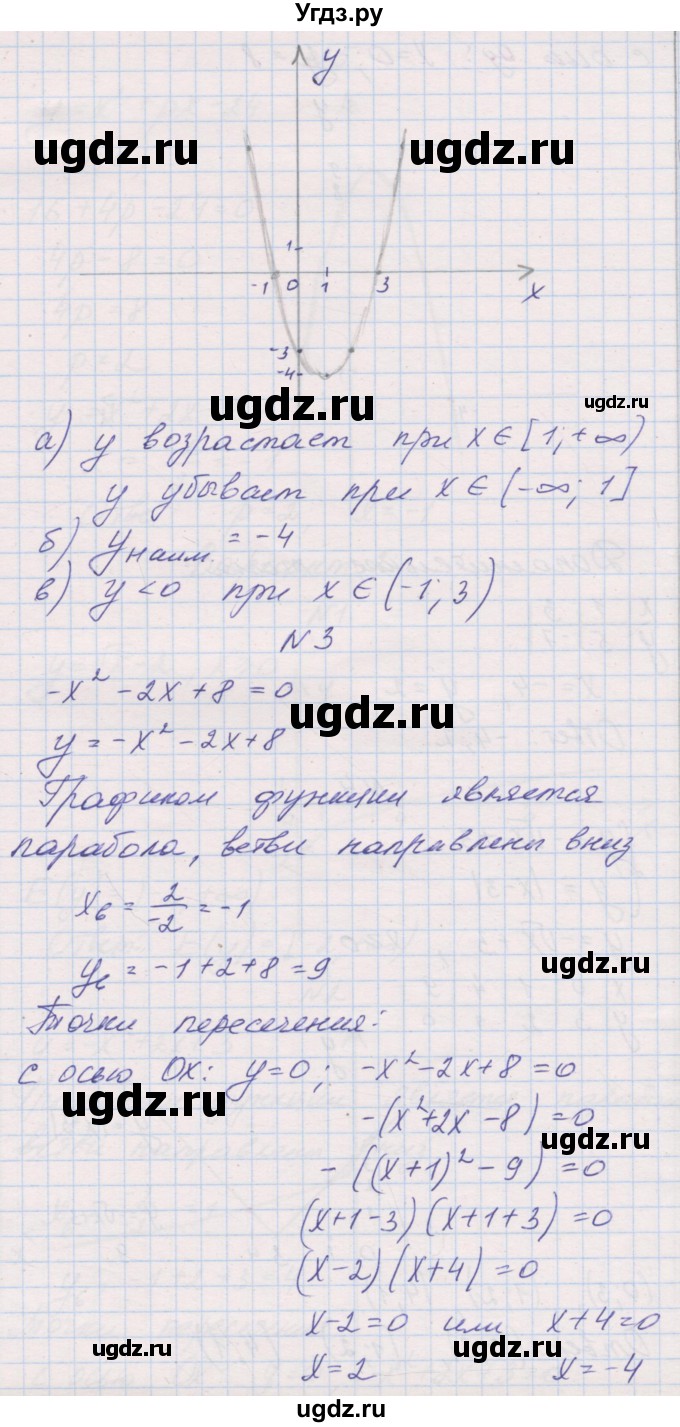 Угдз.ру
y
ugdz.ru ugdz.ru
1
-1 0 1 3
x
-3
-4
ugdz.ru ugdz.ru
а) y возрастает при x ∈ [1; +∞)
y убывает при x ∈ (-∞; 1]
б) yнаим. = -4
ugdz.ru ugdz.ru
в) y < 0 при x ∈ (-1; 3)
N3
-x² - 2x + 8 = 0
ugdz.ru
y = -x² - 2x + 8
Графиком функции является
парабола, ветви направлены вниз
xв = 2/-2 = -1
yв = -1 + 2 + 8 = 9
ugdz.ru
Точки пересечения:
с осью Ox: y = 0; -x² - 2x + 8 = 0
ugdz.ru
-(x² + 2x - 8) = 0
ugdz.ru
-((x + 1)² - 9) = 0
(x + 1 - 3)(x + 1 + 3) = 0
(x - 2)(x + 4) = 0
x - 2 = 0 или x + 4 = 0
ugdz.ru ugdz.ru
x = 2 x = -4
ugdz.ru